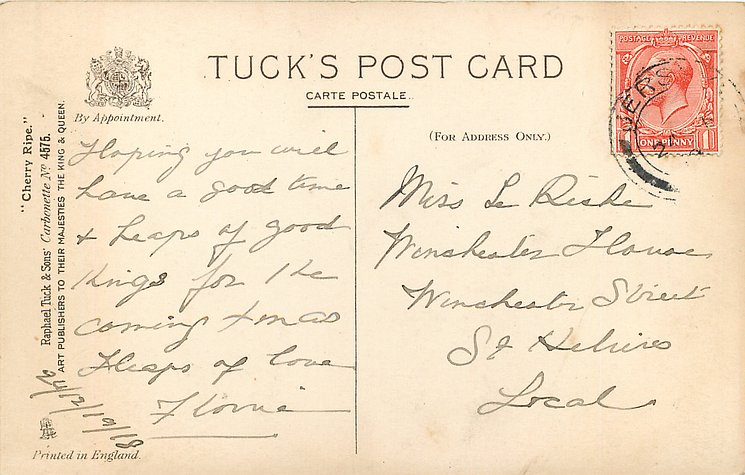 "Cherry Ripe."
Raphael Tuck & Sons' Carbonette No 4575.
ART PUBLISHERS TO THEIR MAJESTIES THE KING & QUEEN.
By Appointment.
TUCK'S POST CARD
CARTE POSTALE.
(FOR ADDRESS ONLY.)
POSTAGE REVENUE
ONE PENNY
JERS
Hoping you will
have a good time
& heaps of good
things for the
coming Xmas
Heaps of love
Florrie
24/12/1918
Miss Le
Winchester House
Winchester Street
St Heliers
Local
Printed in England.